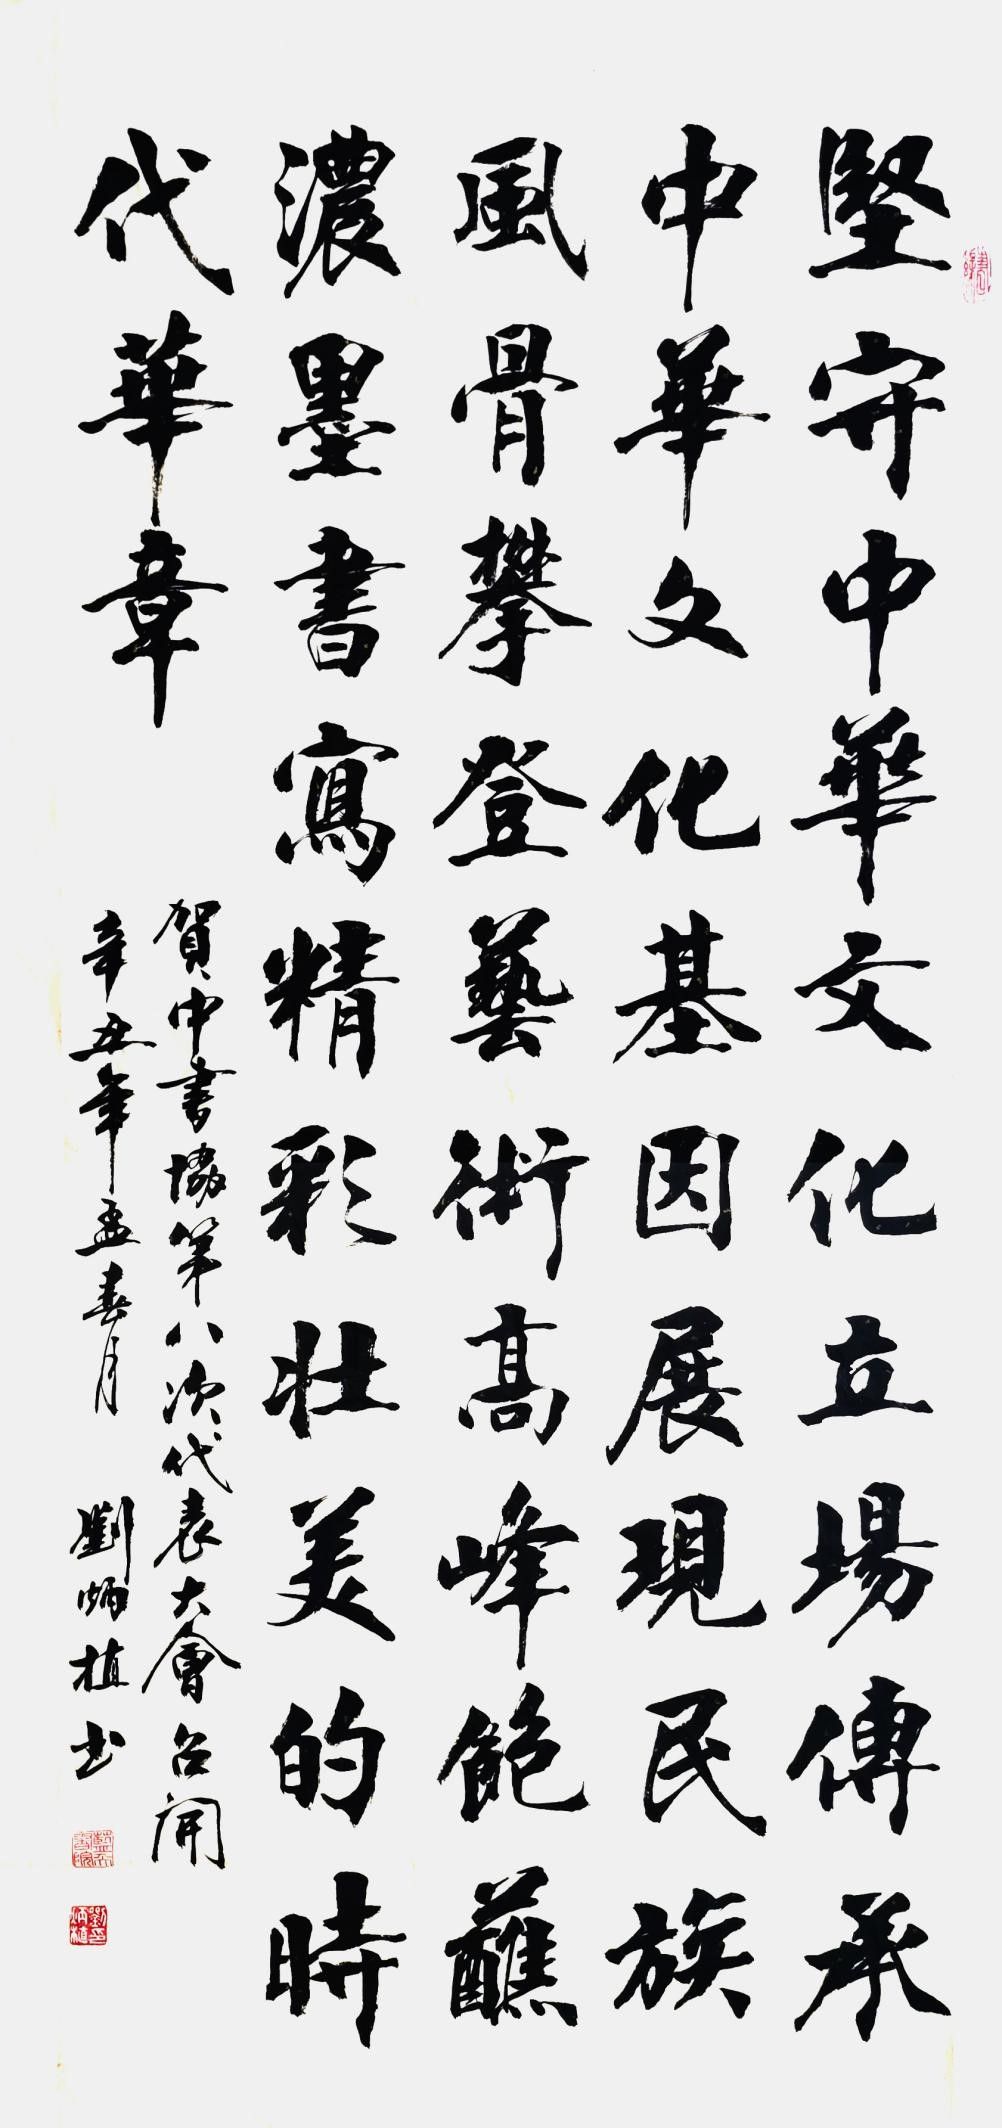 堅守中華文化立場傳承
中華文化基因展現民族
風骨攀登藝術高峰飽蘸
濃墨書寫精彩壯美的時
代華章
賀中書協第八次代表大會召開
辛丑年孟春月
劉炳植书
劉印炳植